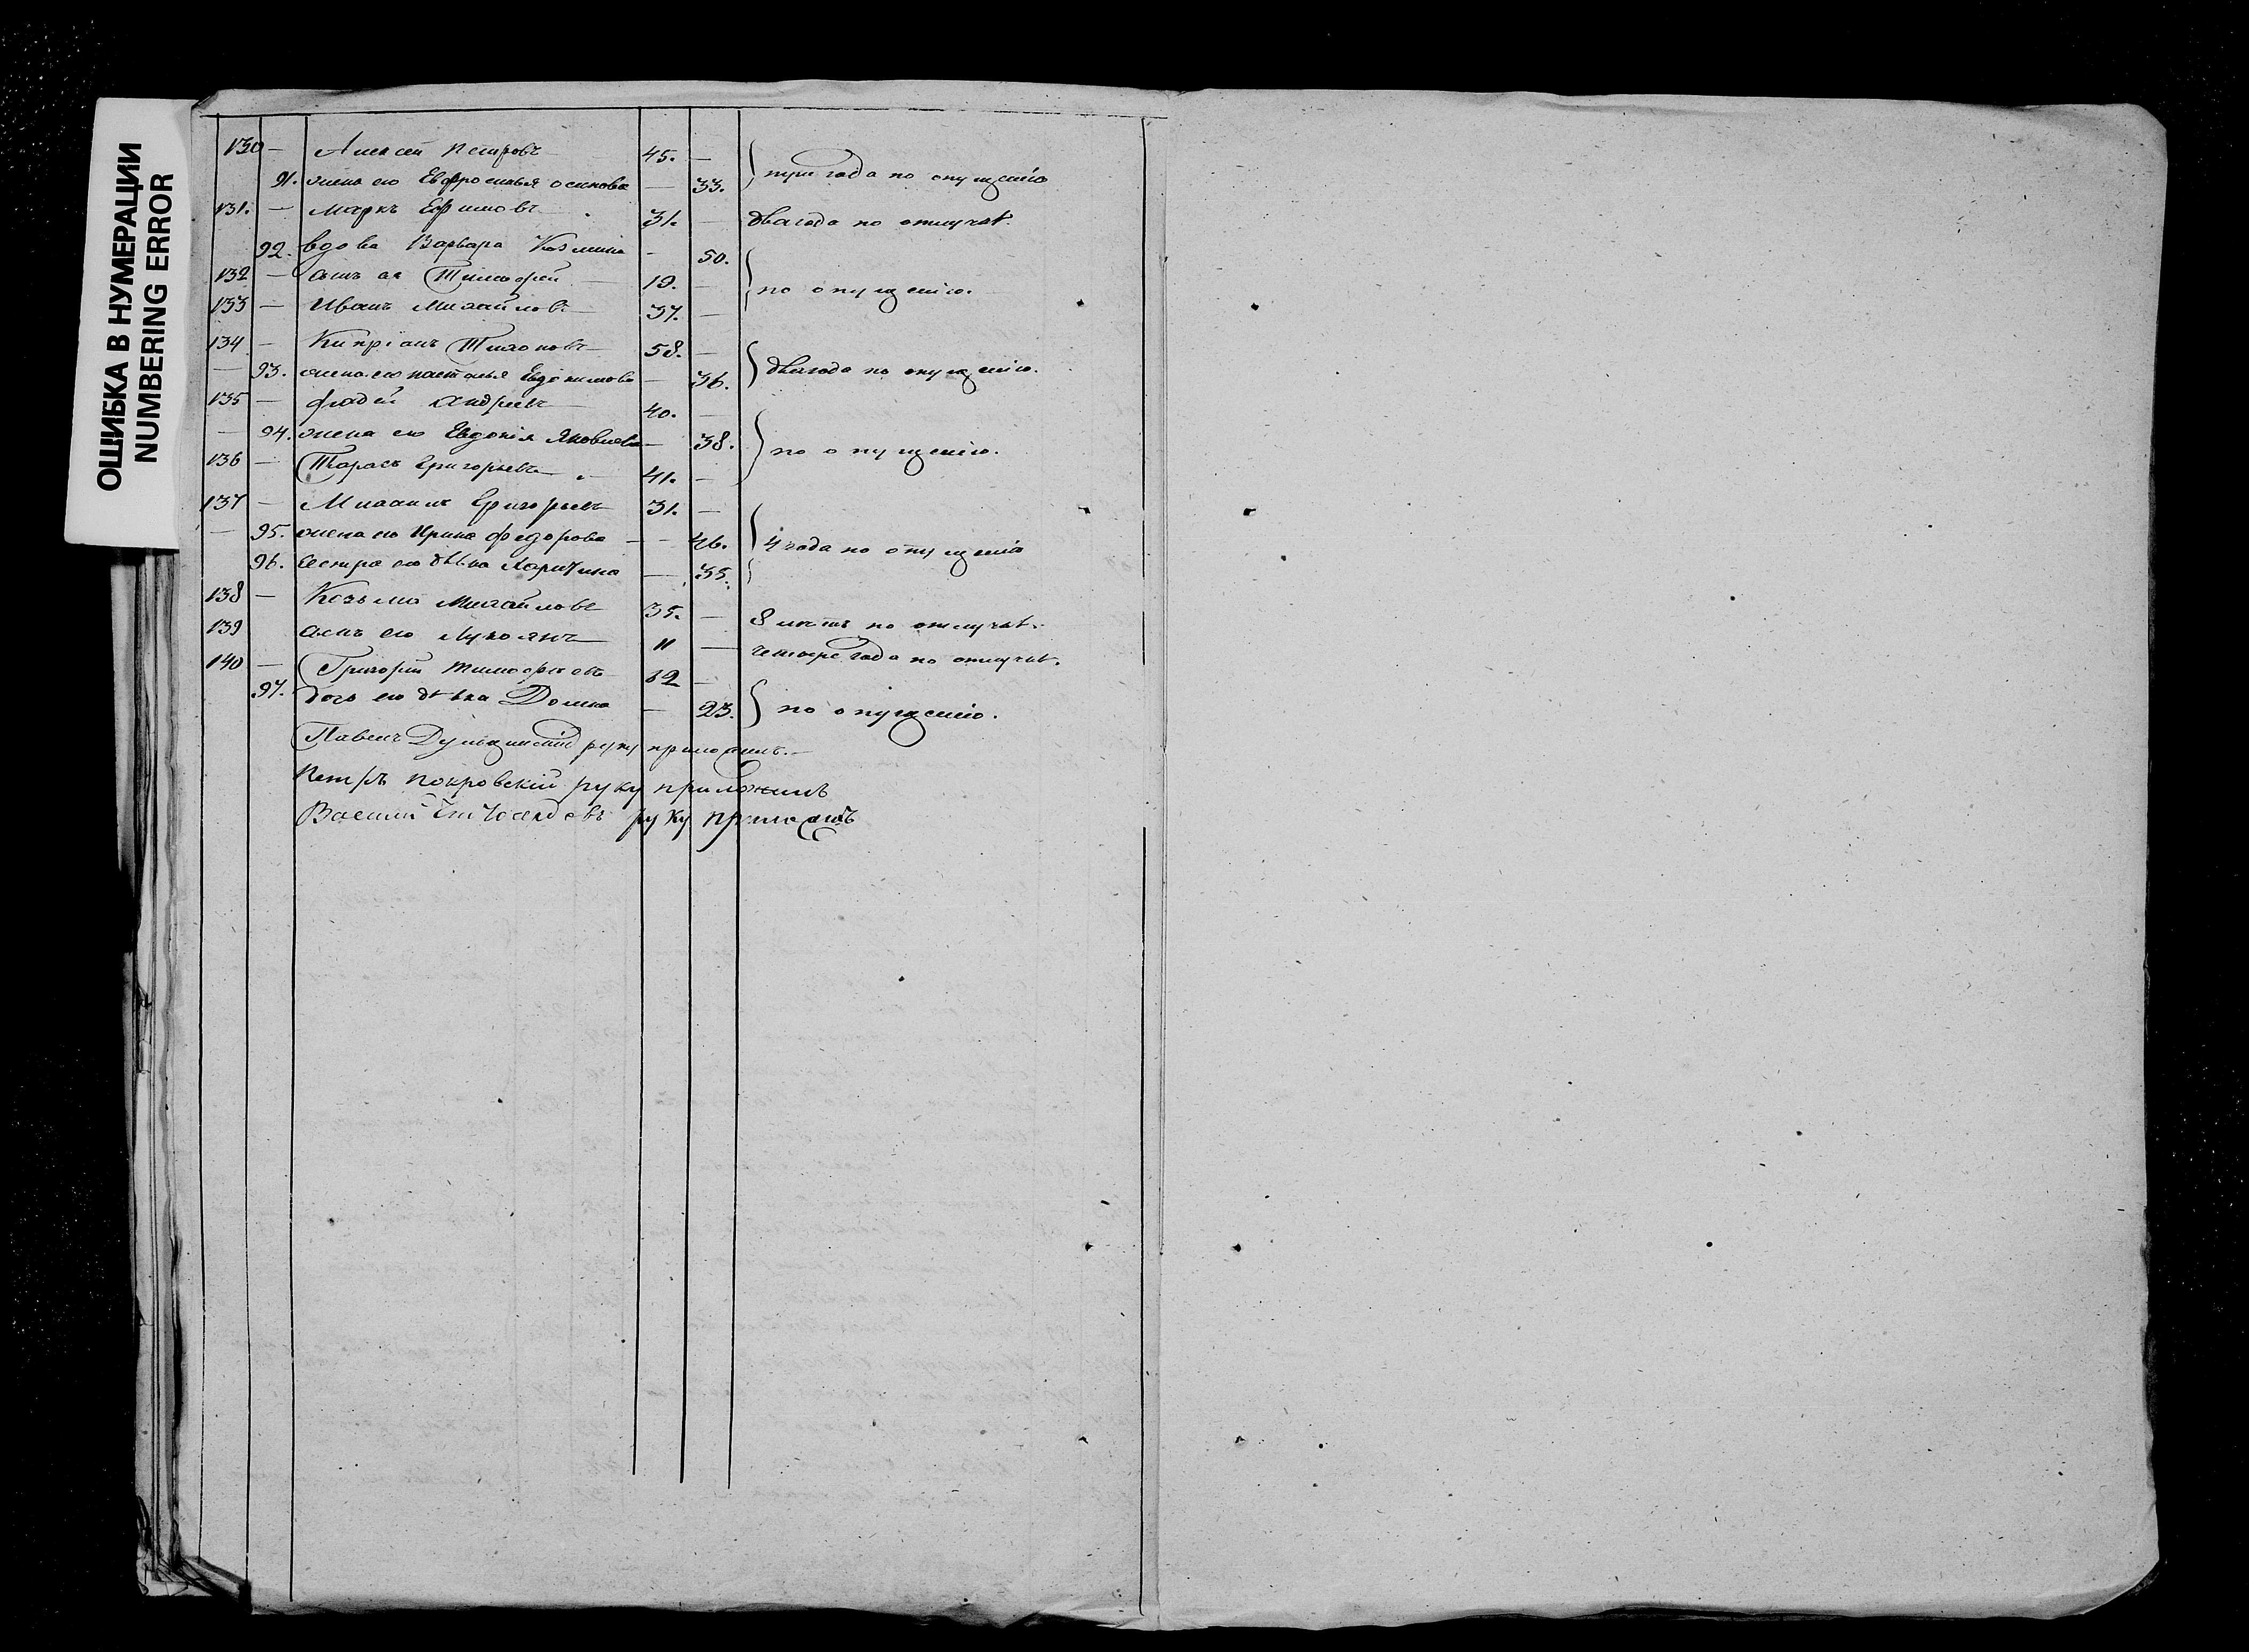 ОШИБКА В НУМЕРАЦИИ
NUMBERING ERROR
130 — Алексей Петровъ 45. —
91. жена его Евфросинья осипова — 33. } три года по опущенію
131. — Маркъ Ефимовъ 31. — два года по отлучкѣ.
92. вдова Варвара Козмина — 50.
132 — сынъ ея Тимофей — 19. — } по опущенію.
133 — Иванъ Михайловъ 37. —
134 — Кипріанъ Тихоновъ 58. —
— 93. жена его настасья Евдокимова — 36. } два года по опущенію.
135 — фадей Андреевъ 40. —
— 94. жена его Евдокія Яковлева — 38. } по опущенію.
136 — Тарасъ Григорьевъ 41. —
137 — Михаилъ Григорьевъ 31. —
— 95. жена его Ирина федорова — 46. } 4 года по опущенію
96. Сестра его дѣвка — 35.
138 — Козьма Михайловъ 35. — 8 лѣтъ по отлучкѣ.
139 сынъ его Лукіянъ 11 — четыре года по отлучкѣ.
140 — Григорій Тимофеевъ 62 —
97. дочь его дѣвка Домна — 23. } по опущенію.
Павелъ руку приложилъ.
Петръ Покровскій руку приложилъ
Василій руку приложилъ